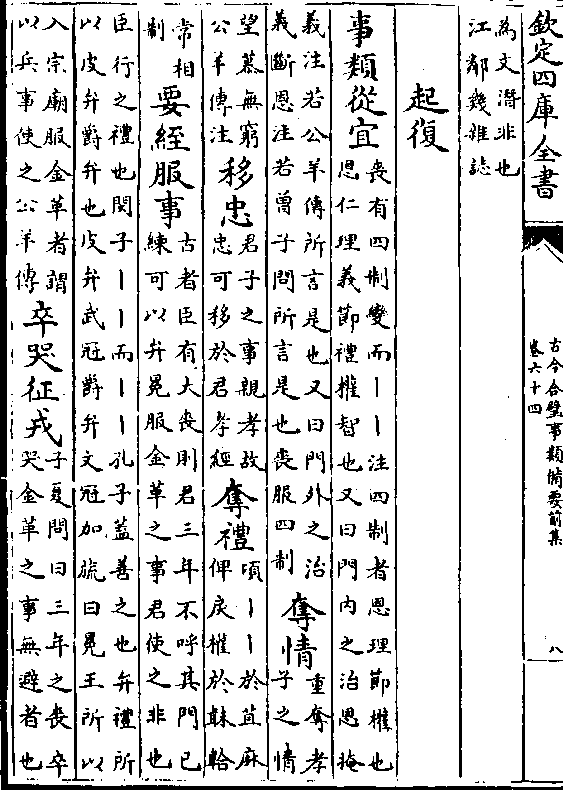 欽定四庫全書
古今合璧事類備要前集
卷六十四
八
為文潛非也
江鄰幾雜誌
起復
事類從宜
喪有四制變而丨丨注四制者恩理節權也
恩仁理義節禮權智也又曰門內之治恩掩
義注若公羊傳所言是也又曰門外之治
義斷恩注若曾子問所言是也喪服四制
奪情
重奪孝
子之情
望慕無窮
公羊傳注
移忠
君子之事親孝故
忠可移於君孝經
奪禮
頃丨丨於苴麻
俾戾權於韎韐
常相
制
要經服事
古者臣有大喪則君三年不呼其門已
練可以弁冕服金革之事君使之非也
臣行之禮也閔子丨丨而丨丨孔子蓋善之也弁禮所
以皮弁爵弁也皮弁武冠爵弁文冠加旒曰冕王所以
入宗廟服金革者謂
以兵事使之公羊傳
卒哭征戎
子夏問曰三年之喪卒
哭金革之事無避者也